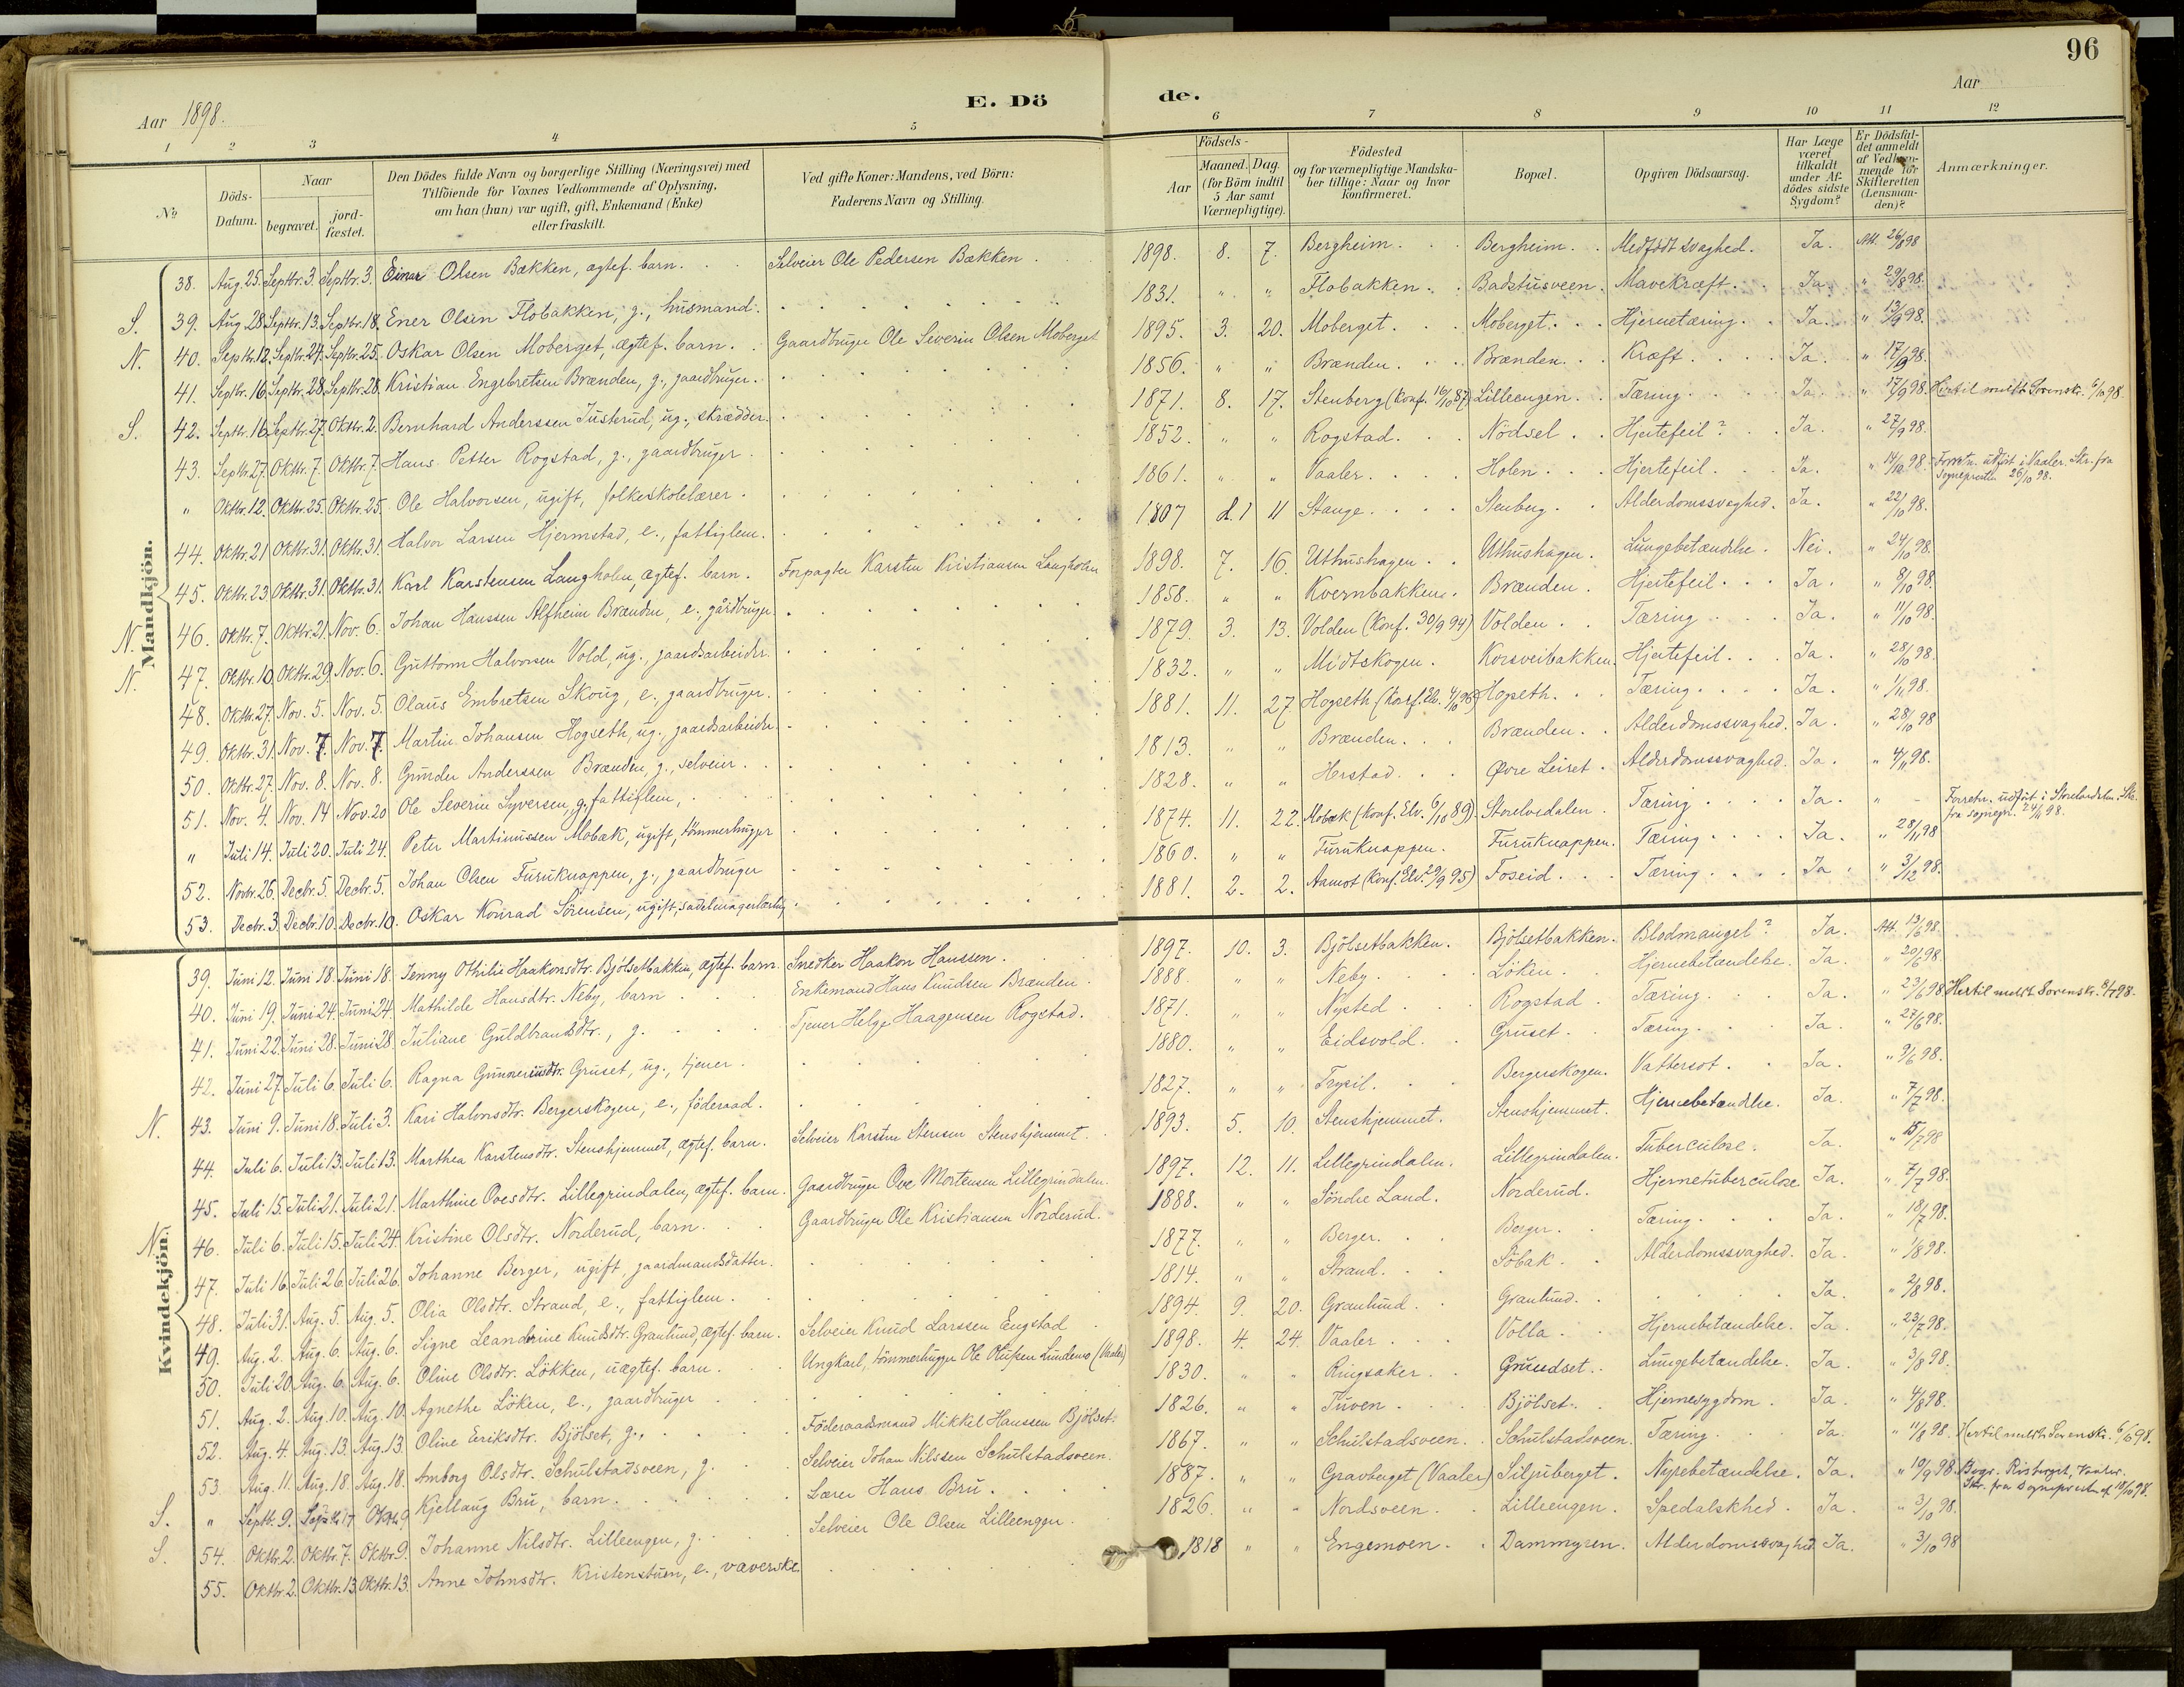 96
Aar 1898.
E. Dö
de.
Aar
1 2 3 4 5 6 7 8 9 10 11 12
No
Döds-Datum.
Naar
begravet.
jord-fæstet.
Den Dödes fulde Navn og borgerlige Stilling (Næringsvei) med
Tilföiende for Voxnes Vedkommende af Oplysning,
om han (hun) var ugift, gift, Enkemand (Enke)
eller fraskilt.
Ved gifte Koner: Mandens, ved Börn:
Faderens Navn og Stilling.
Födsels-
Aar
Maaned. Dag.
(for Börn indtil
5 Aar samt
Værnepligtige).
Födested
og for værnepligtige Mandska-
ber tillige: Naar og hvor
konfirmeret.
Bopæl.
Opgiven Dödsaarsag.
Har Læge
været
tilkaldt
under Af-
dödes sidste
Sygdom?
Er Dödsfal-
det anmeldt
af Vedkom-
mende for
Skifteretten
(Lensman-
den)?
Anmærkninger.
Mandkjön.
38. Aug. 25. Septbr. 3. Septbr. 3. Einar Olsen Bækken, ægtef. barn. Selveier Ole Pedersen Bækken. 1898. 8. 7. Bergheim. Bergheim. Medfödt svaghed. Ja. Att. 26/8 98
S. 39. Aug. 28. Septbr. 13. Septbr. 18. Ener Olsen Flobakken, g., husmand. 1831. " " Flobakken. Badstusveen. Mavekræft. Ja. " 29/8 98.
N. 40. Septbr. 12. Septbr. 24. Septbr. 25. Oskar Olsen Moberget, ægtef. barn. Gaardbruger Ole Severin Olsen Moberget 1895. 3. 20. Moberget. Moberget. Hjernetæring. Ja. " 13/9 98.
41. Septbr. 16. Septbr. 28. Septbr. 28. Kristian Engebretsen Brænden, g., gaardbruger. 1856. " " Brænden. Brænden. Kræft. Ja. " 17/9 98.
S. 42. Septbr. 16. Septbr. 27. Oktbr. 2. Bernhard Anderssen Justerud, ug., skrædder. 1871. 8. 17. Stenberg (Konf. 16/10 87) Lilleengen. Tæring. Ja. " 17/9 98. Hertil meldt Sorenskr. 6/10 98
43. Septbr. 27. Oktbr. 7. Oktbr. 7. Hans Petter Rogstad, g., gaardbruger. 1852. " " Rogstad. Nödsel. Hjertefeil? Ja. " 27/9 98.
" Oktbr. 12. Oktbr. 25. Oktbr. 25. Ole Halvorsen, ugift, folkeskolelærer. 1861. " " Vaaler. Holen. Hjertefeil. Ja. " 14/10 98. Forretn. udfört i Vaaler. Skr. fra Sognepresten 26/10 98.
44. Oktbr. 21 Oktbr. 31. Oktbr. 31. Halvor Larsen Hjermstad, e., fattiglem. 1807 d. 1 11 Stange. Stenberg. Alderdomssvaghed. Ja. " 22/10 98.
45. Oktbr. 23. Oktbr. 31. Oktbr. 31. Karl Karstensen Langholen, ægtef. barn. Forpagter Karsten Kristiansen Langholen 1898. 7. 16. Uthushagen. Uthushagen. Lungebetændelse. Nei. " 24/10 98.
N. 46. Oktbr. 7. Oktbr. 21. Nov. 6. Johan Hanssen Alfheim Brænden, e., gårdbruger. 1858. " " Kvernbakken. Brænden. Hjertefeil. Ja. " 8/10 98.
N. 47. Oktbr. 10. Oktbr. 29. Nov. 6. Guttorm Halvorsen Vold, ug., gaardsarbeider. 1879. 3. 13. Volden (Konf. 30/9 94) Volden. Tæring. Ja. " 11/10 98.
48. Oktbr. 27. Nov. 5. Nov. 5. Olaus Embretsen Skoug, e., gaardbruger. 1832. " " Midtskogen. Korsveibakken. Hjertefeil. Ja. " 28/10 98.
49. Oktbr. 31. Nov. 7. Nov. 7. Martin Johansen Hogseth, ug., gaardsarbeider. 1881. 11. 27 Hogseth (Konf. Elv. 4/10 96) Hogseth. Tæring. Ja. " 1/11 98.
50. Oktbr. 27. Nov. 8. Nov. 8. Gunder Anderssen Brænden, g., selveier. 1813. " " Brænden. Brænden. Alderdomssvaghed. Ja. " 28/10 98
51. Nov. 4. Nov. 14 Nov. 20 Ole Severin Syversen, g., fattiglem, 1828. " " Herstad. Øvre Leiret. Alderdomssvaghed. Ja. " 4/11 98.
" Juli 14. Juli 20. Juli 24. Peter Martinussen Mobæk, ugift, tömmerhugger 1874. 11. 22. Mobæk (Konf. Elv. 6/10 89). Storelvedalen. Tæring. Ja. " - Forretn. udfört i Storelvedalen. Skr. fra sognepr. 24/11 98.
52. Novbr. 26. Decbr. 5. Decbr. 5. Johan Olsen Furuknappen, g., gaardbruger 1860. " " Furuknappen. Furuknappen. Tæring. Ja. " 28/11 98
53. Decbr. 3. Decbr. 10. Decbr. 10. Oskar Konrad Sörensen, ugift, sadelmagerlærling. 1881. 2. 2. Aamot (Konf. Elv. 29/9 95) Foseid. Tæring. Ja. " 3/12 98.
Kvindekjön.
39. Juni 12. Juni 18. Juni 18. Jenny Othilie Haakonsdtr. Bjölsetbakken, ægtef. barn. Snedker Haakon Hanssen. 1897. 10. 3. Bjölsetbakken. Bjölsetbakken. Blodmangel? Ja. Att. 13/6 98.
40. Juni 19. Juni 24. Juni 24. Mathilde Hansdtr. Neby, barn. Enkemand Hans Knudsen Brænden. 1888. " " Neby. Löken. Hjernebetændelse. Ja. " 20/6 98.
41. Juni 22. Juni 28. Juni 28. Juliane Guldbrandsdtr., g. Tjener Helge Haagensen Rogstad. 1871. " " Nysted. Rogstad. Tæring. Ja. " 23/6 98. Hertil meldt Sorenskr. 8/7 98.
42. Juni 27. Juli 6. Juli 6. Ragna Gunneriusdtr. Gruset, ug., tjener. 1880. " " Eidsvold. Gruset. Tæring. Ja. " 27/6 98.
N. 43. Juni 9. Juni 18. Juli 3. Kari Halvorsdtr. Bergerskogen, e., föderaad. 1827. " " Trysil. Bergerskogen. Vattersot. Ja. " 9/6 98.
44. Juli 6. Juli 13. Juli 13. Marthea Karstensdtr. Stenshjemmet, ægtef. barn. Selveier Karsten Stensen Stenshjemmet. 1893. 5. 10. Stenshjemmet. Stenshjemmet. Hjernebetændelse. Ja. " 7/7 98.
45. Juli 15. Juli 21. Juli 21. Marthine Ovesdtr. Lillegrindalen, ægtef. barn. Gaardbruger Ove Mortensen Lillegrindalen. 1897. 12. 11. Lillegrindalen. Lillegrindalen. Tuberculose. Ja. " 15/7 98
N. 46. Juli 6. Juli 15. Juli 24. Kristine Olsdtr. Norderud, barn. Gaardbruger Ole Kristiansen Norderud. 1888. " " Söndre Land. Norderud. Hjernetuberculose Ja. " 7/7 98.
47. Juli 16. Juli 26. Juli 26. Johanne Berger, ugift, gaardmandsdatter. 1877. " " Berger. Berger. Tæring. Ja. " 18/7 98.
48. Juli 31. Aug. 5. Aug. 5. Olia Olsdtr. Strand, e., fattiglem. 1814. " " Strand. Söbak. Alderdomssvaghed. Ja. " 1/8 98.
49. Aug. 2. Aug. 6. Aug. 6. Signe Leandrine Knudsdtr. Granlund, ægtef. barn. Selveier Knud Larssen Engstad 1894. 9. 20. Granlund. Granlund. Ja. " 2/8 98.
50. Juli 20. Aug. 6. Aug. 6. Oline Olsdtr. Lökken, uægtef. barn. Ungkarl, tömmerhugger Ole Olufsen Lundemo (Vaaler) 1898. 4. 24. Vaaler. Volla. Hjernebetændelse. Ja. " 23/7 98.
51. Aug. 2. Aug. 10. Aug. 10. Agnethe Löken, e., gaardbruger 1830. " " Ringsaker. Grundset. Lungebetændelse. Ja. " 3/8 98.
52. Aug. 4. Aug. 13. Aug. 13. Oline Eriksdtr. Bjölset, g., Föderaadsmand Mikkel Hanssen Bjölset. 1826. " " Tuven. Bjölset. Hjernesygdom. Ja. " 4/8 98.
53. Aug. 11. Aug. 18. Aug. 18. Amborg Olsdtr. Schulstadsveen, g. Selveier Johan Nilssen Schulstadsveen. 1867. " " Schulstadsveen. Schulstadsveen. Tæring. Ja. " 11/8 98. Hertil meldt Sorenskr. 6/6 98.
S. " Septbr. 9. Septbr. 17 Oktbr. 9 Kjellaug Bru, barn. Lærer Hans Bru. 1887. " " Gravberget (Vaaler) Siljuberget. Nyrebetændelse. Ja. " 10/9 98. Begr. Risberget, Vaaler. Skr. fra Sognepresten af 18/10 98.
S. 54. Oktbr. 2. Oktbr. 7. Oktbr. 9. Johanne Nilsdtr. Lilleengen, g. Selveier Ole Olsen Lilleengen. 1826. " " Nordsveen. Lilleengen. Spedalskhed. Ja. " 3/10 98.
55. Oktbr. 2. Oktbr. 13. Oktbr. 13. Anne Johnsdtr. Kristenstuen, e., væverske. 1818 " " Engemoen. Dammyren. Alderdomssvaghed. Ja. " 3/10 98